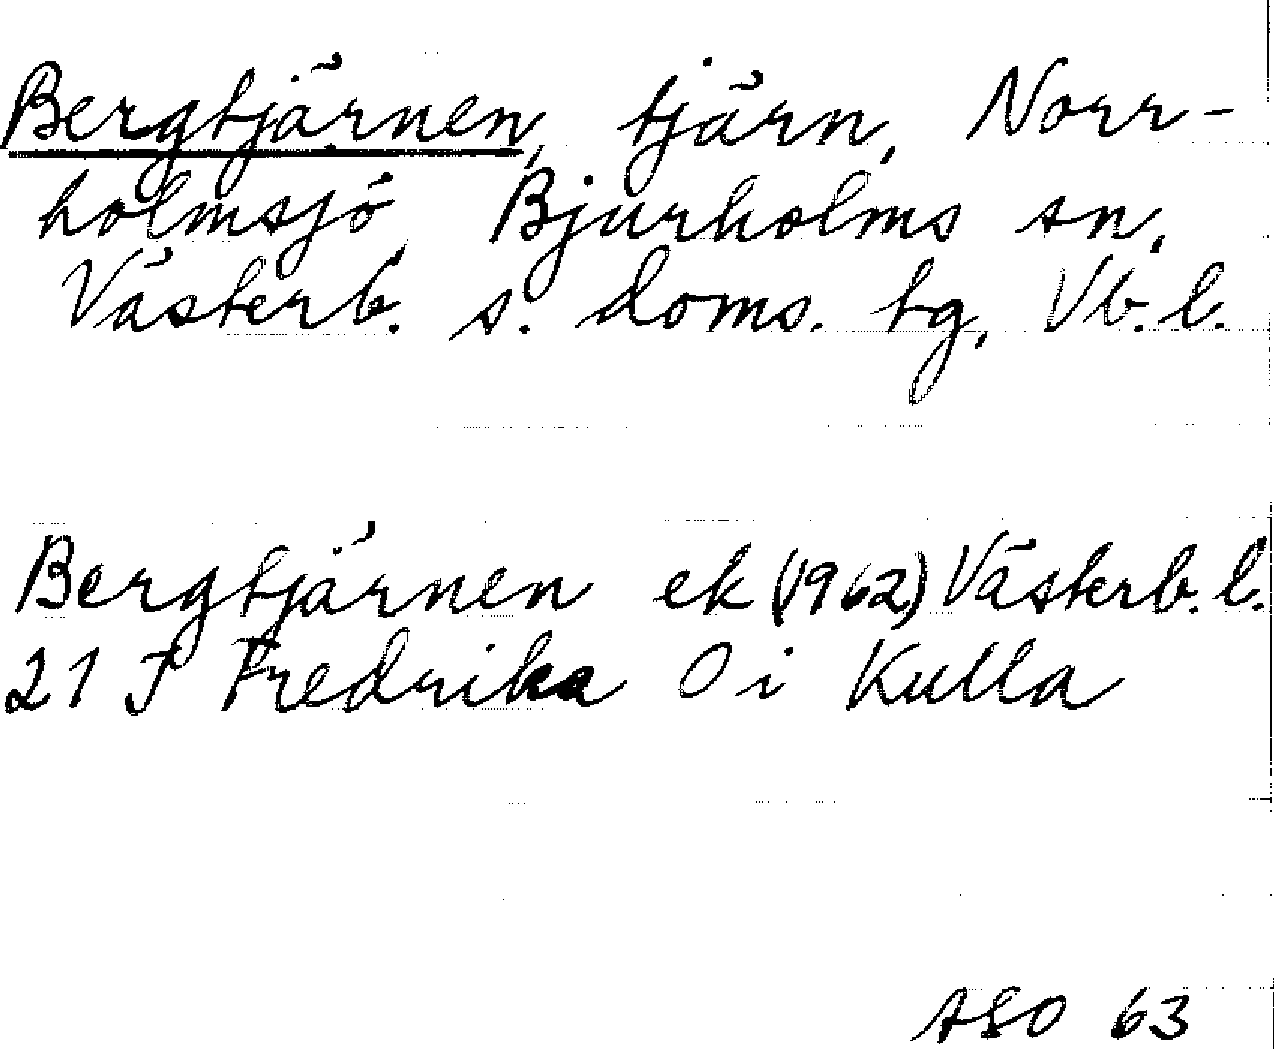 Bergtjärnen, tjärn, Norr-
holmsjö, Bjurholms sn,
Västerb. s. doms. tg, Vb. l.
Bergtjärnen ek (1962) Västerb. l.
21 J Fredrika Ö i Kulla
ASO 63